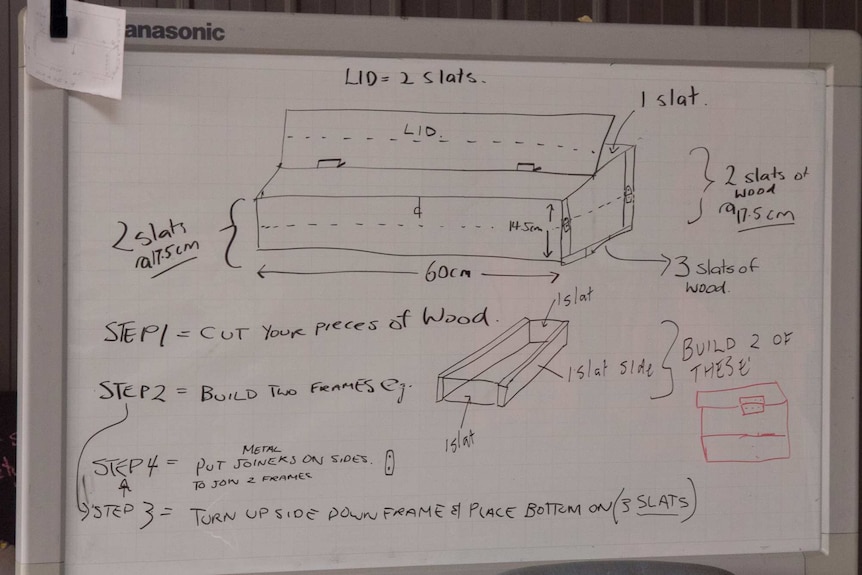 Panasonic
LID = 2 slats.
1 slat.
LID.
2 slats of
wood
@17.5cm
2 slats
@17.5cm
14.5cm
60cm
3 slats of
wood.
STEP 1 = CUT YOUR PIECES of Wood.
1 slat
1 slat side
1 slat
BUILD 2 OF
THESE
STEP 2 = BUILD TWO FRAMES eg.
STEP 4 = PUT METAL JOINERS ON SIDES.
TO JOIN 2 FRAMES
STEP 3 = TURN UP SIDE DOWN FRAME & PLACE BOTTOM ON (3 SLATS)